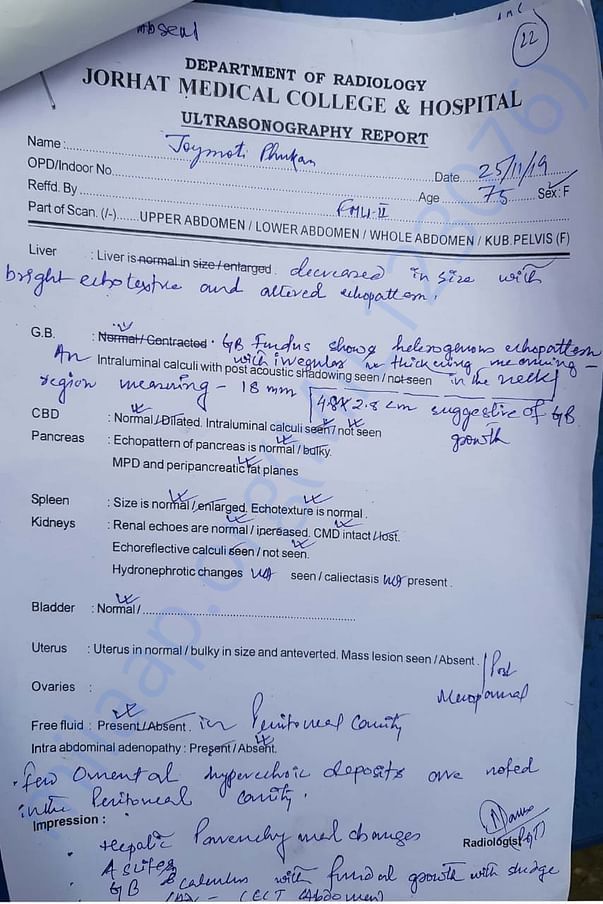 Absent
22
DEPARTMENT OF RADIOLOGY
JORHAT MEDICAL COLLEGE & HOSPITAL
ULTRASONOGRAPHY REPORT
Name : Joymoti Phukan
OPD/Indoor No. Date 25/11/19
Reffd. By FMU-II Age 75 Sex: F
Part of Scan. (-/-) UPPER ABDOMEN / LOWER ABDOMEN / WHOLE ABDOMEN / KUB.PELVIS (F)
Liver : Liver is normal in size / enlarged . decreased in size with
bright echotexture and altered echopattern.
G.B. : Normal / Contracted . GB Fundus shows heterogenous echopattern
with irregular thickening measuring –
An Intraluminal calculi with post acoustic shadowing seen / not seen in the neck
region measuring – 18 mm 4.8 x 2.8 cm suggestive of GB
growth
CBD : Normal / Dilated. Intraluminal calculi seen / not seen
Pancreas : Echopattern of pancreas is normal / bulky.
MPD and peripancreatic fat planes
Spleen : Size is normal / enlarged. Echotexture is normal .
Kidneys : Renal echoes are normal / increased. CMD intact / lost.
Echoreflective calculi seen / not seen.
Hydronephrotic changes not seen / caliectasis not present .
Bladder : Normal /
Uterus : Uterus in normal / bulky in size and anteverted. Mass lesion seen / Absent . Post
Menopausal
Ovaries :
Free fluid : Present / Absent . in Peritoneal cavity
Intra abdominal adenopathy : Present / Absent.
. few Omental hyperechoic deposits are noted
in the Peritoneal cavity.
Impression :
Hepatic Parenchymal changes
Radiologist
Ascites
GB calculus with fundal growth with sludge
CECT Abdomen
milaap.org